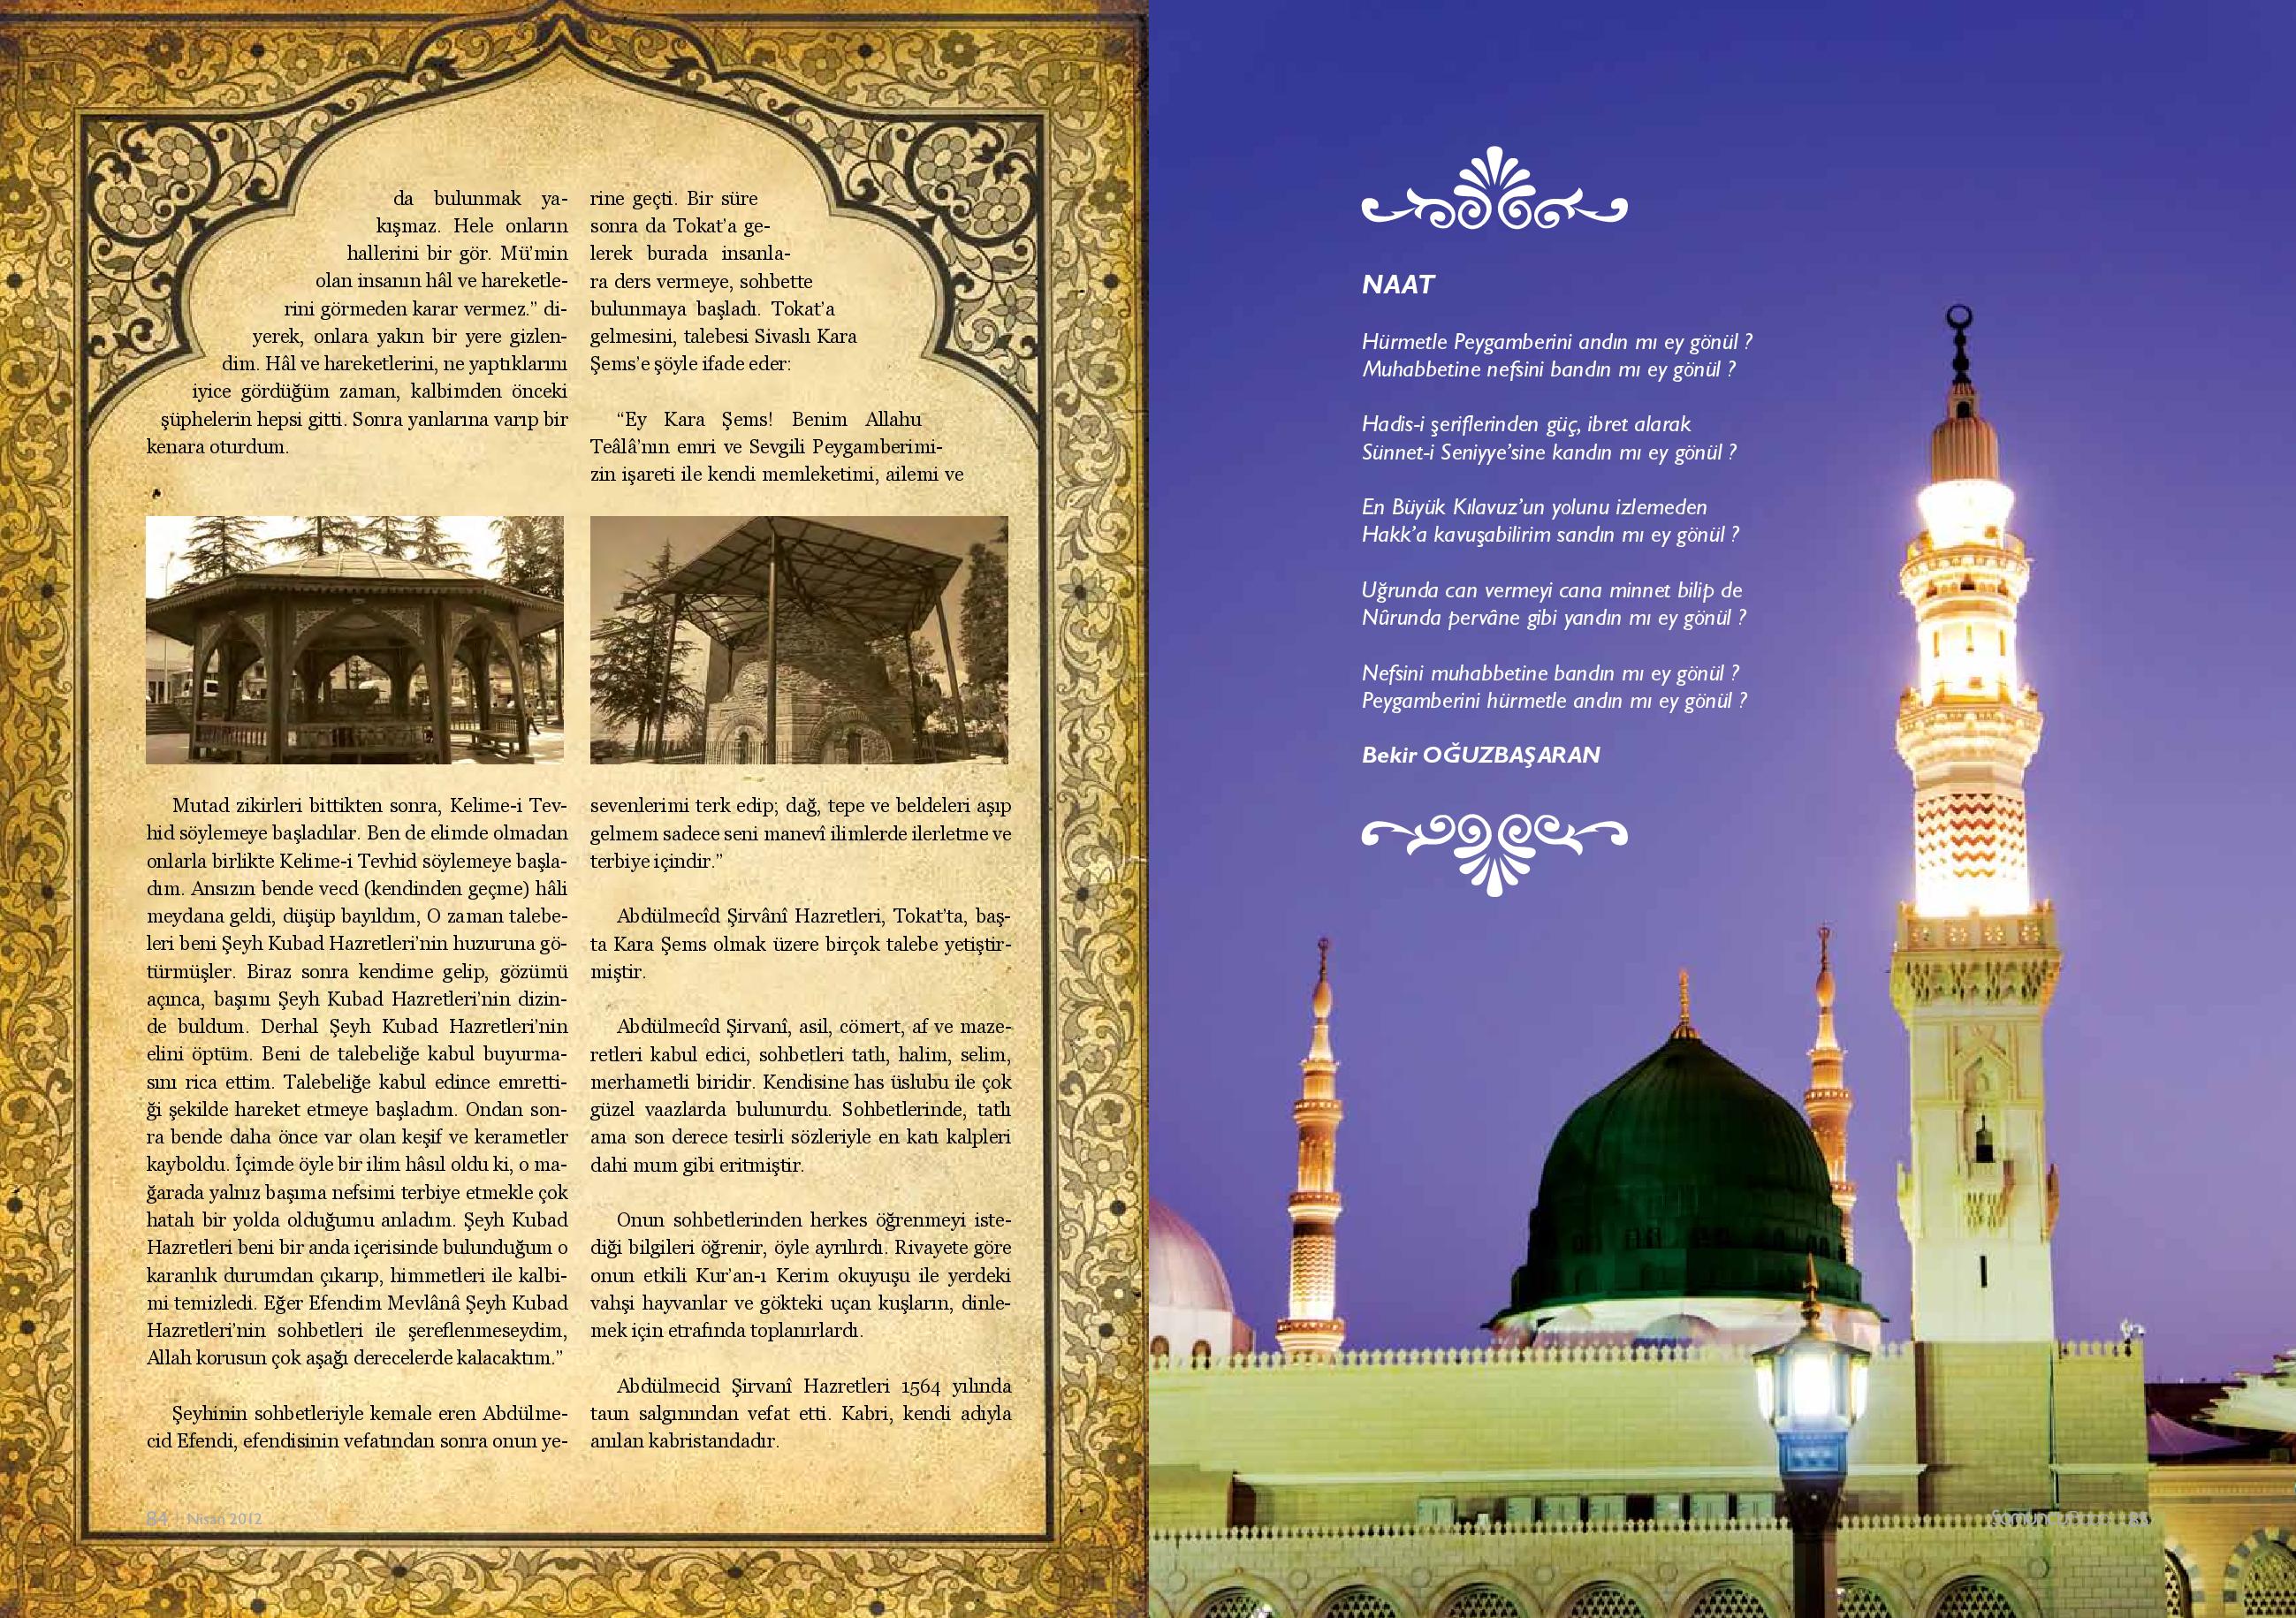 da bulunmak ya-
kışmaz. Hele onların
hallerini bir gör. Mü'min
olan insanın hâl ve hareketle-
rini görmeden karar vermez.” di-
yerek, onlara yakın bir yere gizlen-
dim. Hâl ve hareketlerini, ne yaptıklarını
iyice gördüğüm zaman, kalbimden önceki
şüphelerin hepsi gitti. Sonra yanlarına varıp bir
kenara oturdum.
Mutad zikirleri bittikten sonra, Kelime-i Tev-
hid söylemeye başladılar. Ben de elimde olmadan
onlarla birlikte Kelime-i Tevhid söylemeye başla-
dım. Ansızın bende vecd (kendinden geçme) hâli
meydana geldi, düşüp bayıldım, O zaman talebe-
leri beni Şeyh Kubad Hazretleri'nin huzuruna gö-
türmüşler. Biraz sonra kendime gelip, gözümü
açınca, başımı Şeyh Kubad Hazretleri'nin dizin-
de buldum. Derhal Şeyh Kubad Hazretleri'nin
elini öptüm. Beni de talebeliğe kabul buyurma-
sını rica ettim. Talebeliğe kabul edince emretti-
ği şekilde hareket etmeye başladım. Ondan son-
ra bende daha önce var olan keşif ve kerametler
kayboldu. İçimde öyle bir ilim hâsıl oldu ki, o ma-
ğarada yalnız başıma nefsimi terbiye etmekle çok
hatalı bir yolda olduğumu anladım. Şeyh Kubad
Hazretleri beni bir anda içerisinde bulunduğum o
karanlık durumdan çıkarıp, himmetleri ile kalbi-
mi temizledi. Eğer Efendim Mevlânâ Şeyh Kubad
Hazretleri'nin sohbetleri ile şereflenmeseydim,
Allah korusun çok aşağı derecelerde kalacaktım.”
Şeyhinin sohbetleriyle kemale eren Abdülme-
cid Efendi, efendisinin vefatından sonra onun ye-
rine geçti. Bir süre
sonra da Tokat'a ge-
lerek burada insanla-
ra ders vermeye, sohbette
bulunmaya başladı. Tokat'a
gelmesini, talebesi Sivaslı Kara
Şems'e şöyle ifade eder:
“Ey Kara Şems! Benim Allahu
Teâlâ'nın emri ve Sevgili Peygamberimi-
zin işareti ile kendi memleketimi, ailemi ve
sevenlerimi terk edip; dağ, tepe ve beldeleri aşıp
gelmem sadece seni manevî ilimlerde ilerletme ve
terbiye içindir.”
Abdülmecîd Şirvânî Hazretleri, Tokat'ta, baş-
ta Kara Şems olmak üzere birçok talebe yetiştir-
miştir.
Abdülmecîd Şirvanî, asil, cömert, af ve maze-
retleri kabul edici, sohbetleri tatlı, halim, selim,
merhametli biridir. Kendisine has üslubu ile çok
güzel vaazlarda bulunurdu. Sohbetlerinde, tatlı
ama son derece tesirli sözleriyle en katı kalpleri
dahi mum gibi eritmiştir.
Onun sohbetlerinden herkes öğrenmeyi iste-
diği bilgileri öğrenir, öyle ayrılırdı. Rivayete göre
onun etkili Kur'an-ı Kerim okuyuşu ile yerdeki
vahşi hayvanlar ve gökteki uçan kuşların, dinle-
mek için etrafında toplanırlardı.
Abdülmecid Şirvanî Hazretleri 1564 yılında
taun salgınından vefat etti. Kabri, kendi adıyla
anılan kabristandadır.
84 | Nisan 2012
NAAT
Hürmetle Peygamberini andın mı ey gönül ?
Muhabbetine nefsini bandın mı ey gönül ?
Hadis-i şeriflerinden güç, ibret alarak
Sünnet-i Seniyye'sine kandın mı ey gönül ?
En Büyük Kılavuz'un yolunu izlemeden
Hakk'a kavuşabilirim sandın mı ey gönül ?
Uğrunda can vermeyi cana minnet bilip de
Nûrunda pervâne gibi yandın mı ey gönül ?
Nefsini muhabbetine bandın mı ey gönül ?
Peygamberini hürmetle andın mı ey gönül ?
Bekir OĞUZBAŞARAN